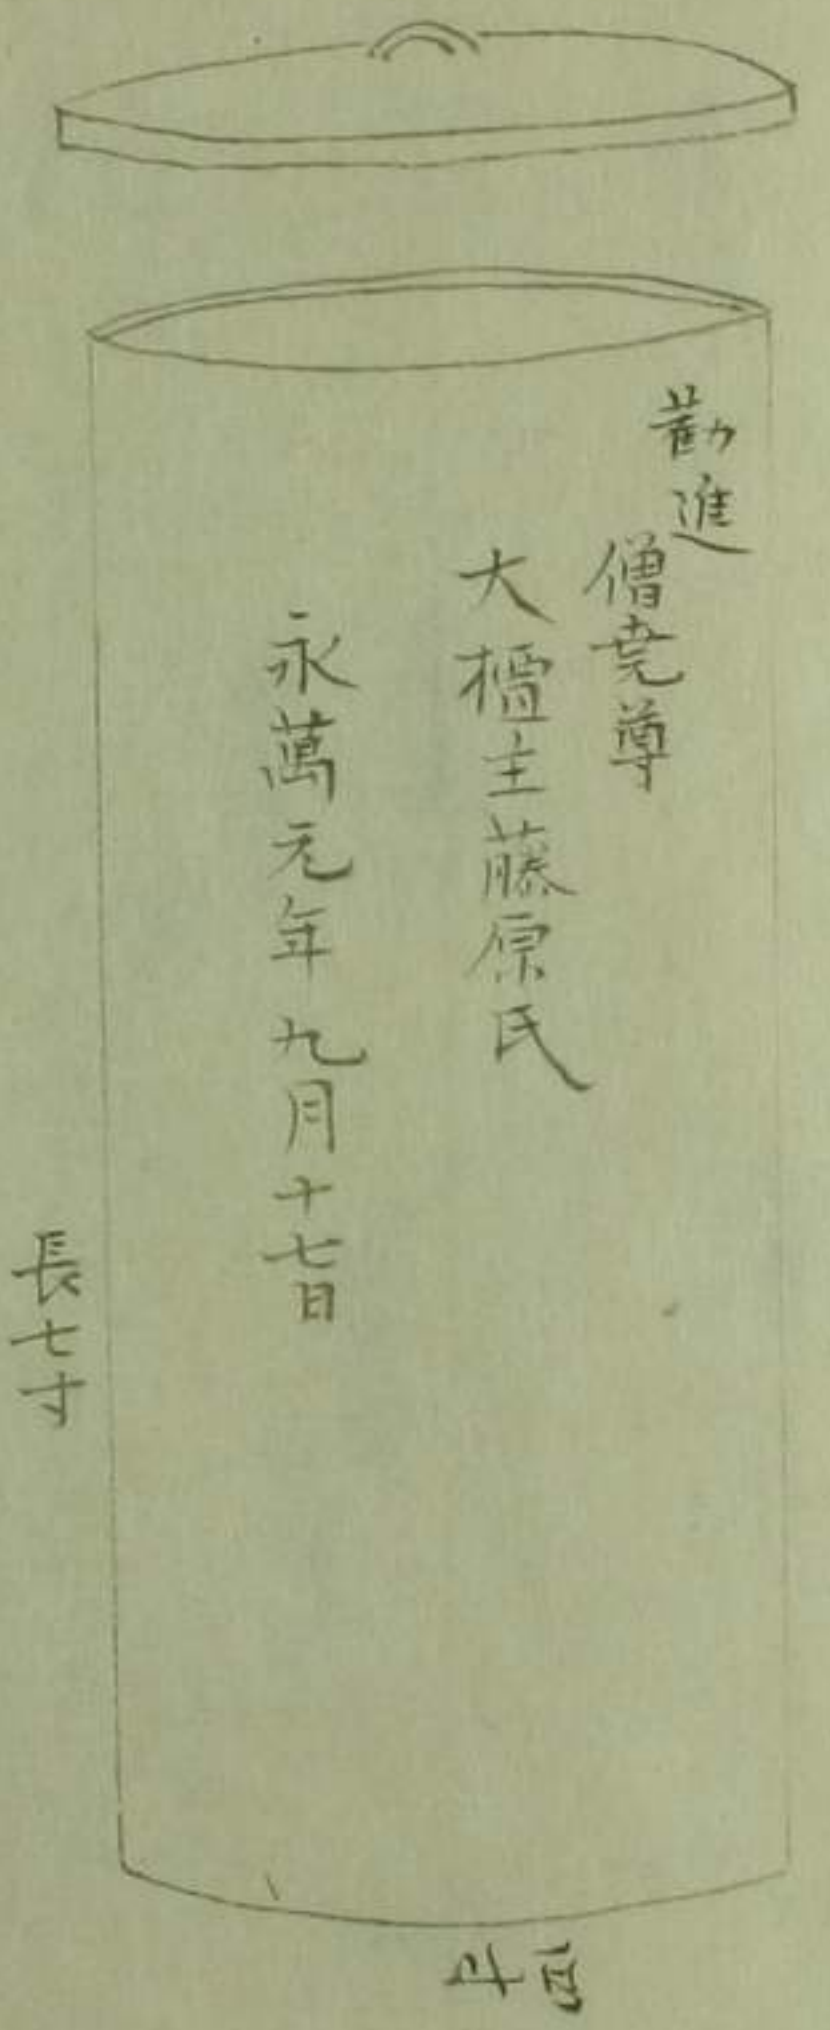 勸進
僧尭尊
大檀主藤原氏
永萬元年九月十七日
長七寸